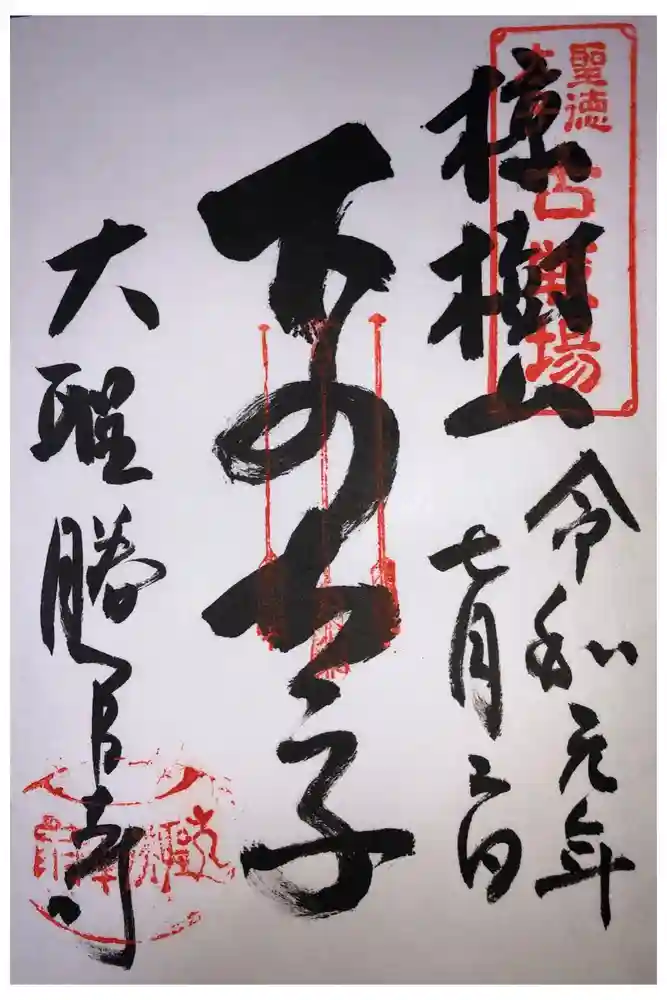 聖徳
太子
古戦場
椋樹山
令和元年
七月二日
下の太子
大聖勝軍寺